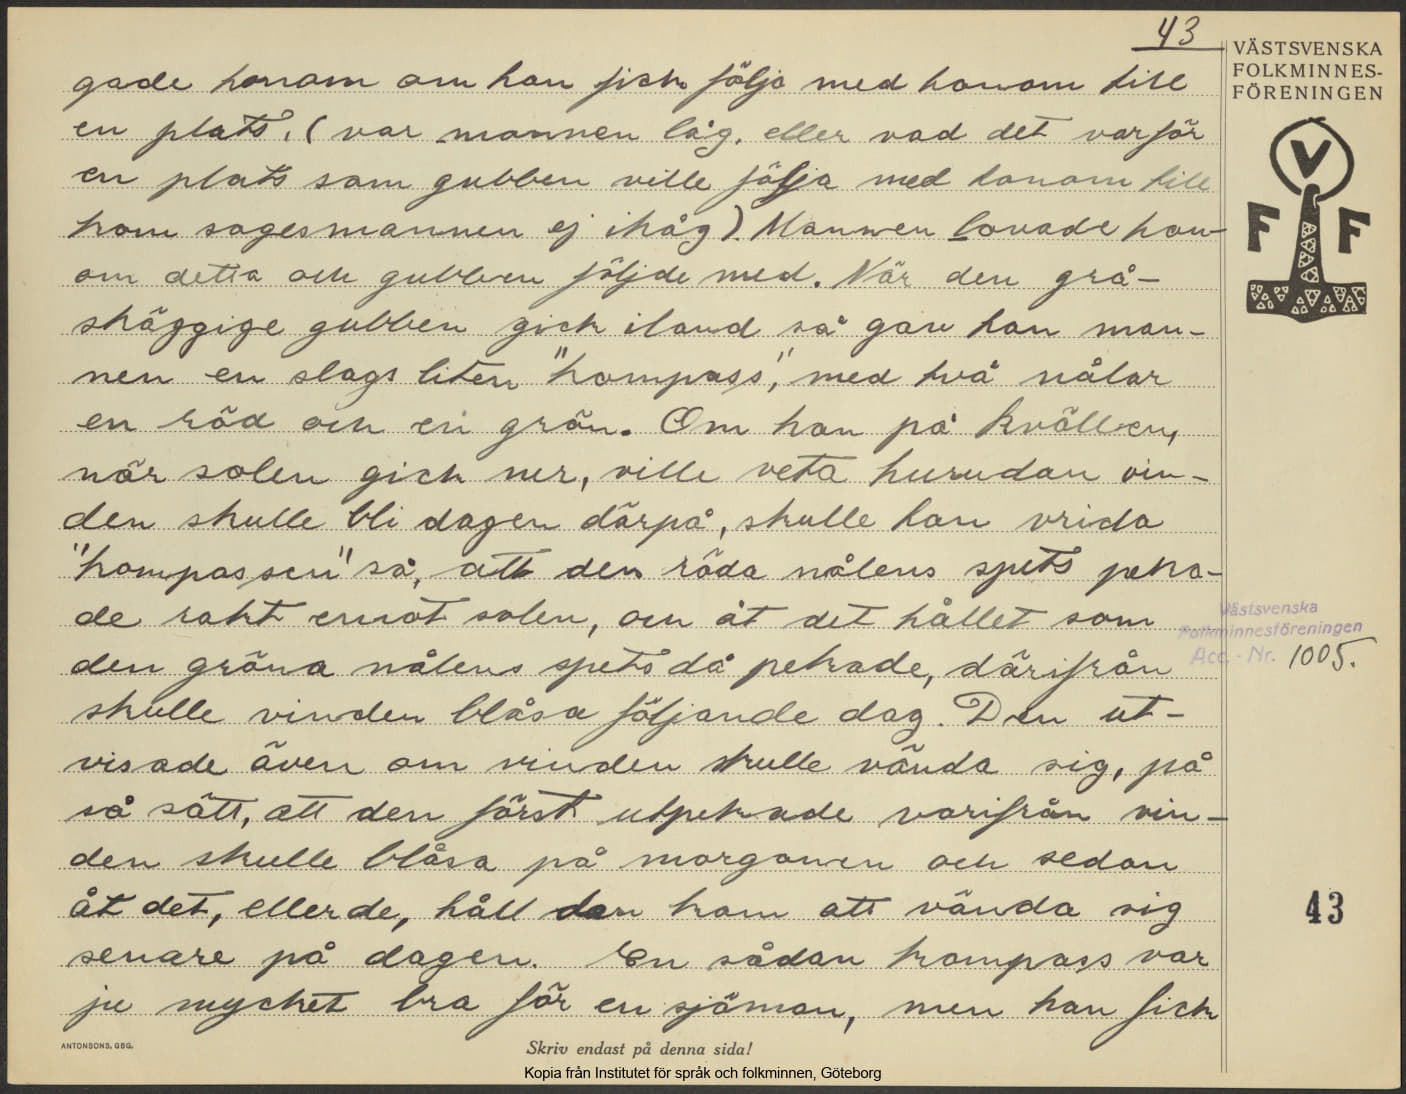 43
VÄSTSVENSKA
FOLKMINNES-
FÖRENINGEN
gade honom om han fick följa med honom till
en plats. (var mannen låg, eller vad det var för
en plats som gubben ville följa med honom till
kom sagesmannen ej ihåg). Mannen lovade hon-
om detta och gubben följde med. När den grå-
skäggige gubben gick iland så gav han man-
nen en slags liten "kompass", med två nålar
en röd och en grön. Om han på kvällen,
när solen gick ner, ville veta hurudan vin-
den skulle bli dagen därpå, skulle han vrida
"kompassen" så, att den röda nålens spets peka-
de rakt emot solen, och åt det hållet som
den gröna nålens spets då pekade, därifrån
skulle vinden blåsa följande dag. Den ut-
visade även om vinden skulle vända sig, på
så sätt, att den först utpekade varifrån vin-
den skulle blåsa på morgonen och sedan
åt det, eller de, håll den kom att vända sig
senare på dagen. En sådan kompass var
ju mycket bra för en sjöman, men han fick
V
F F
Västsvenska
Folkminnesföreningen
Acc. - Nr. 1005.
43
ANTONSONS, GBG.
Skriv endast på denna sida!
Kopia från Institutet för språk och folkminnen, Göteborg